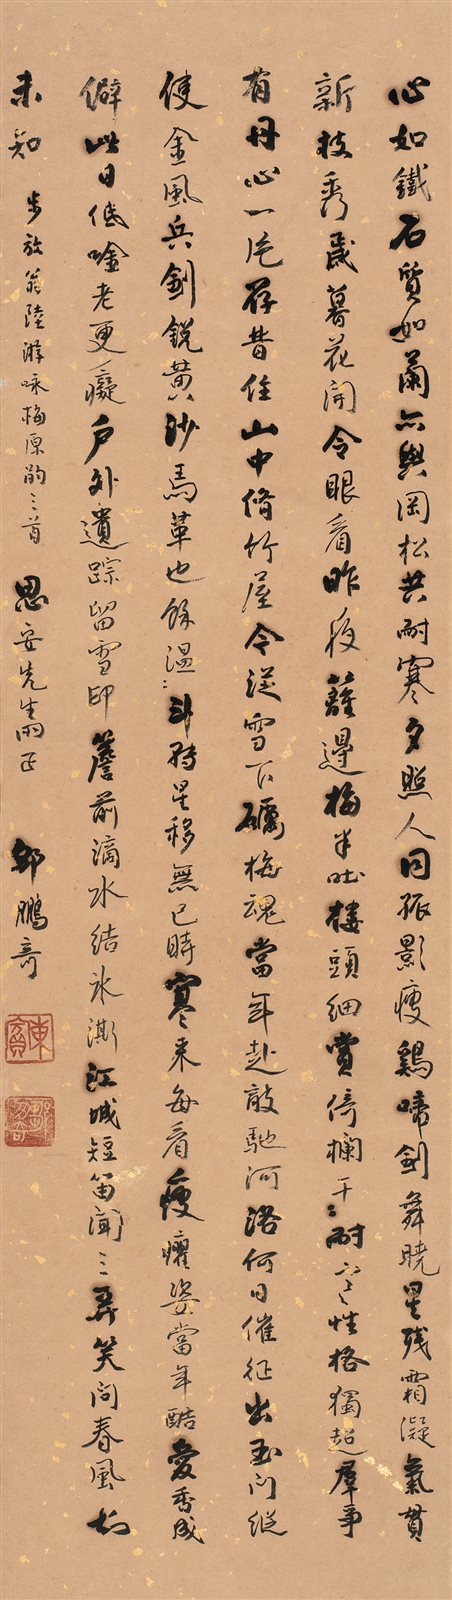 心如鐵石質如蘭亦與岡松共耐寒夕照人同孤影瘦鷄啼劍舞曉星殘霜凝氣貫
新枝秀歲暮花開令眼看昨夜籬邊梅半吐樓頭細賞倚欄干〻耐寒性格獨超羣幸
有丹心一片存昔住山中脩竹屋今從雪下礪梅魂當年赴敵馳河洛何日催征出玉門縱
使金風兵劍銳黃沙馬革也餘溫〻斗轉星移無已時寒來每看瘦癯姿當年酷愛香成
僻此日低唫老更癡戶外遺踪留雪印簷前滴水結冰澌江城短笛聞三弄笑問春風知
未知 步放翁陸游咏梅原韵三首 思安先生兩正 鄒鵬奇
鄒鵬奇